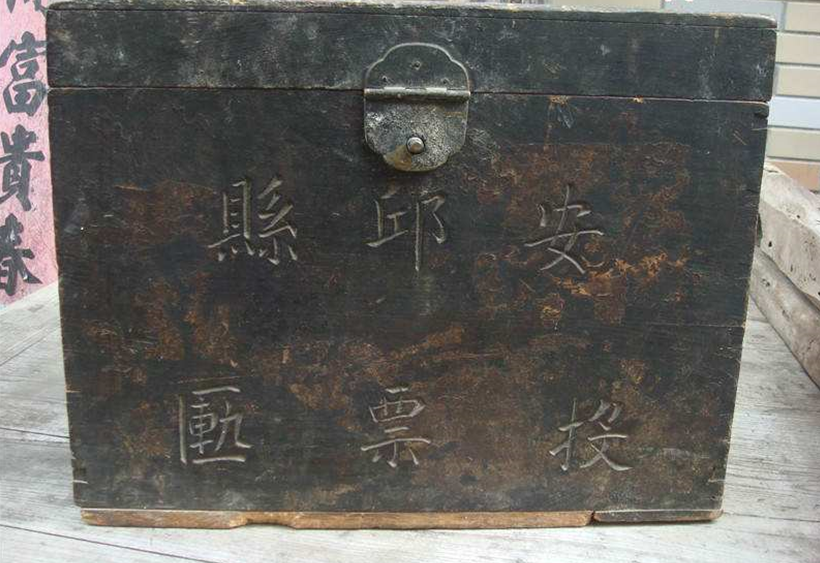 安邱縣
投票匭
富貴春